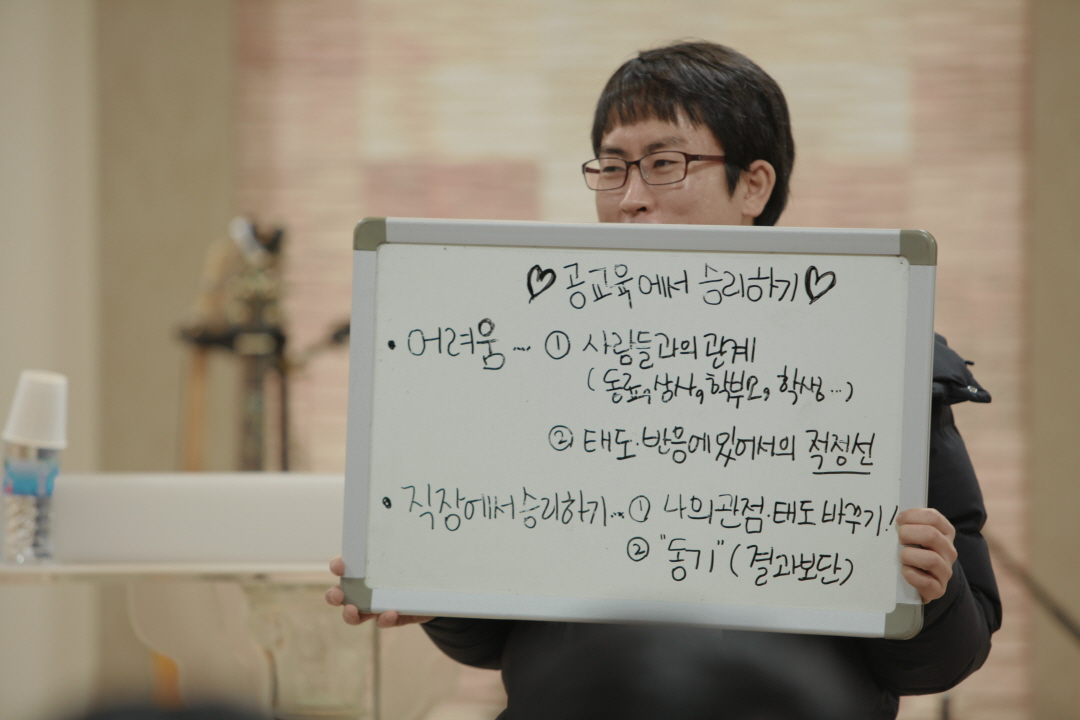 ♡ 공교육에서 승리하기 ♡
• 어려움 … ① 사람들과의 관계
(동료, 상사, 학부모, 학생 …)
② 태도·반응에 있어서의 적정선
• 직장에서 승리하기 … ① 나의 관점·태도 바꾸기!
② "동기" (결과보단)